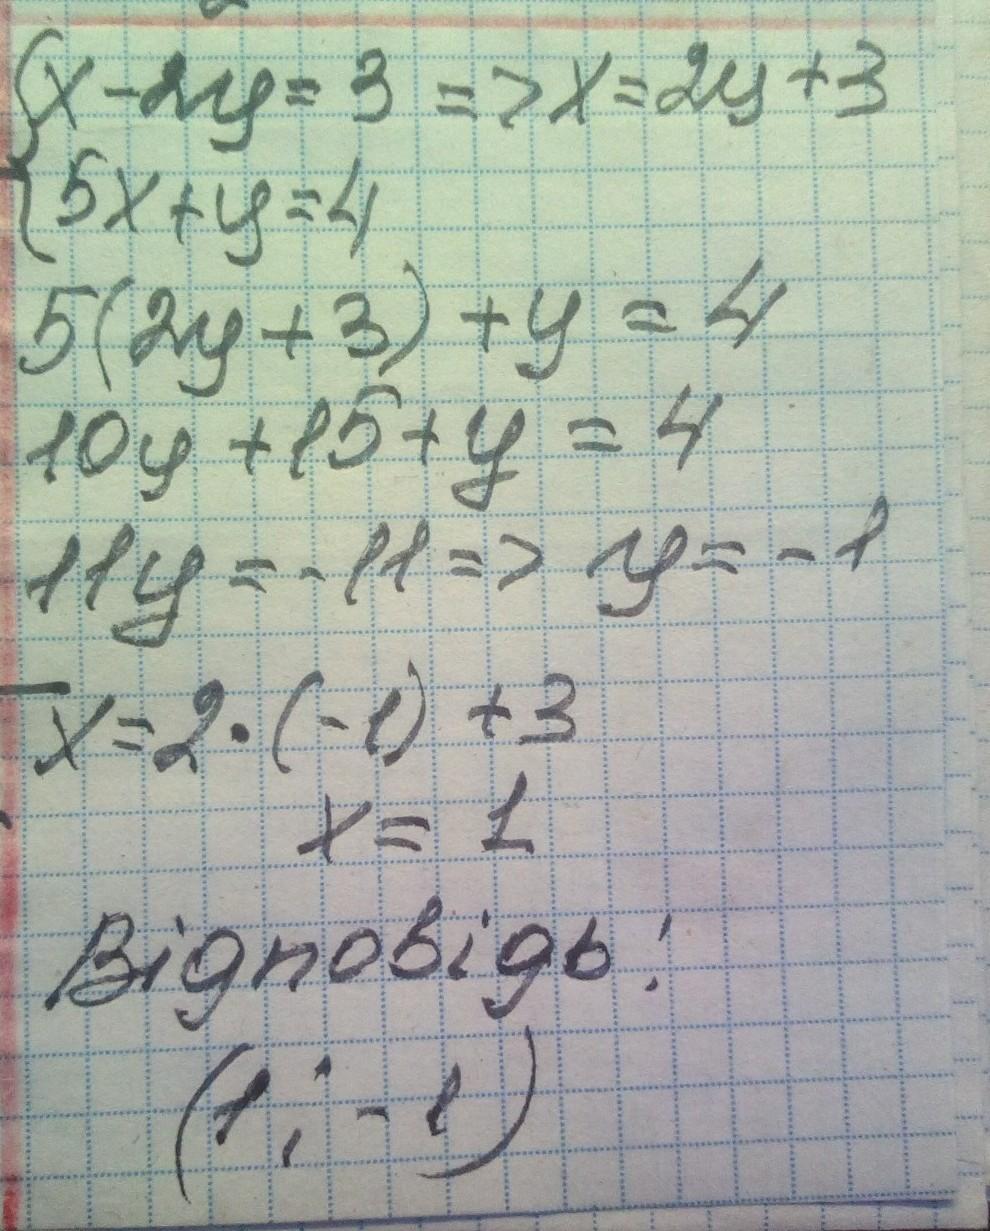 {x-2y=3 => x=2y+3
{5x+y=4
5(2y+3)+y=4
10y+15+y=4
11y=-11=> y=-1
x=2·(-1)+3
x=1
Відповідь:
(1;-1)